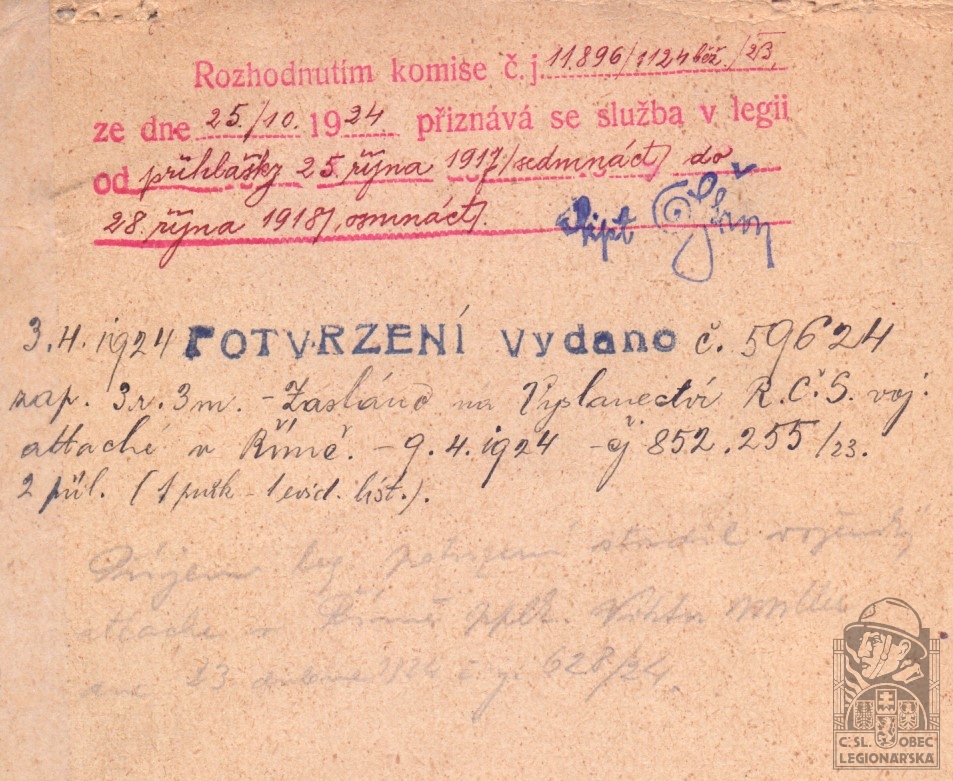 Rozhodnutím komise č. j. 11.896/1124 běž./23,
ze dne 25./10. 1924 přiznává se služba v legii
od přihlášky 25. října 1917/sedmnáct/ do
28. října 1918/osmnáct/.
3.4. 1924 POTVRZENÍ Vydano č. 59624
zap. 3r. 3m. - Zasláno na Vyslanectví R.Č.S. voj.
attaché v Římě. - 9.4.1924 - čj 852.255/23.
2 příl. (1 - 1 evid. list.).
Příjem leg. potvrzení vojenský
attache v Římě pplk.
dne 23 dubna 1924 č.j. 628/24
Č.SL. OBEC
LEGIONÁRSKÁ